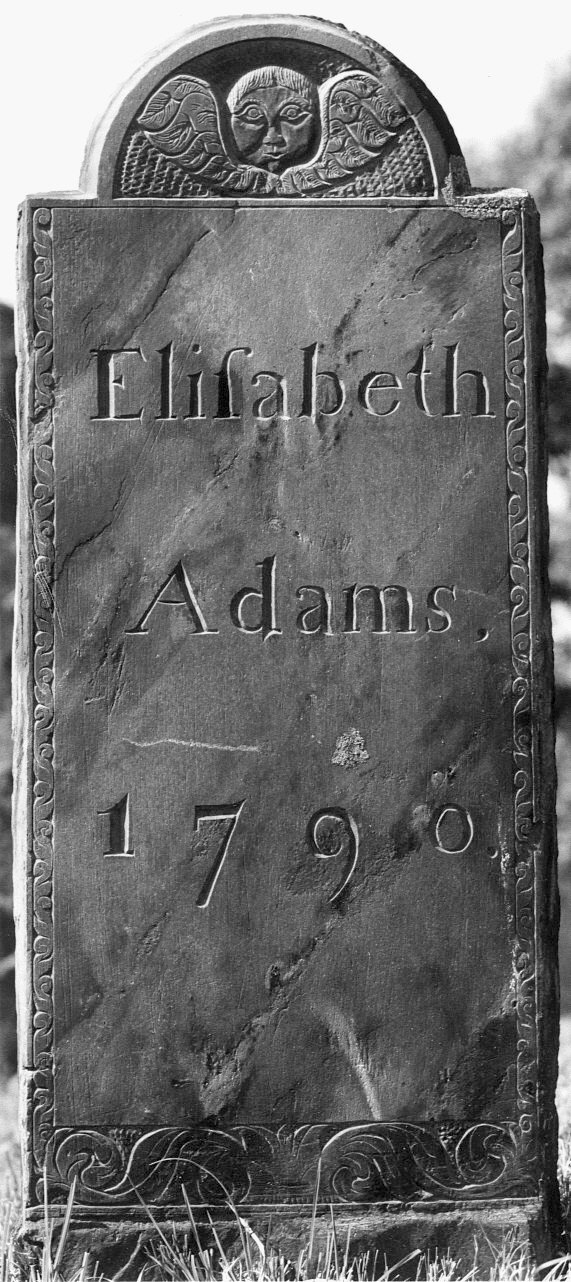 Eliſabeth
Adams,
1790.